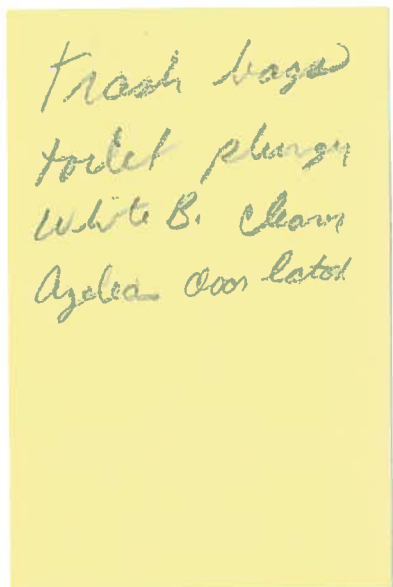 Trash bags
toilet plunger
White B. cleaner
Azelea door latch